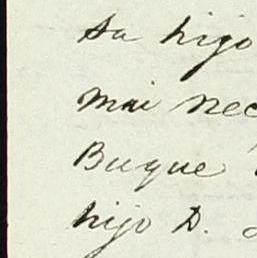 su hijo
mai nec
Buque
hijo D.